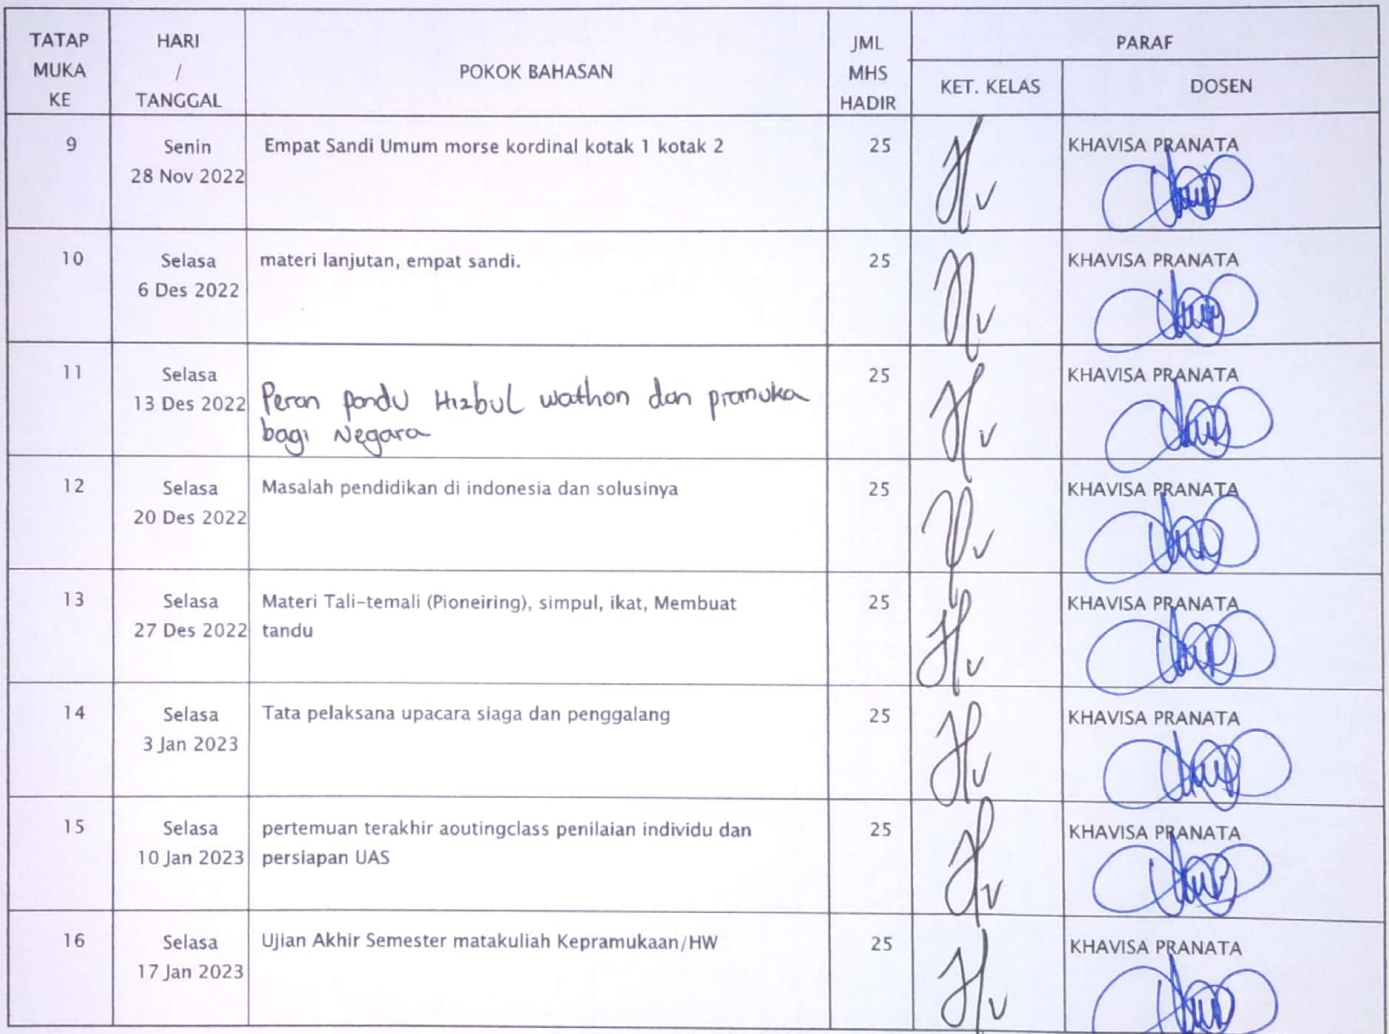 TATAP MUKA KE
HARI / TANGGAL
POKOK BAHASAN
JML MHS HADIR
PARAF
KET. KELAS
DOSEN
9
Senin
28 Nov 2022
Empat Sandi Umum morse kordinal kotak 1 kotak 2
25
KHAVISA PRANATA
10
Selasa
6 Des 2022
materi lanjutan, empat sandi.
25
KHAVISA PRANATA
11
Selasa
13 Des 2022
Peran pandu Hizbul wathon dan pramuka
bagi Negara
25
KHAVISA PRANATA
12
Selasa
20 Des 2022
Masalah pendidikan di indonesia dan solusinya
25
KHAVISA PRANATA
13
Selasa
27 Des 2022
Materi Tali-temali (Pioneiring), simpul, ikat, Membuat
tandu
25
KHAVISA PRANATA
14
Selasa
3 Jan 2023
Tata pelaksana upacara siaga dan penggalang
25
KHAVISA PRANATA
15
Selasa
10 Jan 2023
pertemuan terakhir aoutingclass penilaian individu dan
persiapan UAS
25
KHAVISA PRANATA
16
Selasa
17 Jan 2023
Ujian Akhir Semester matakuliah Kepramukaan/HW
25
KHAVISA PRANATA